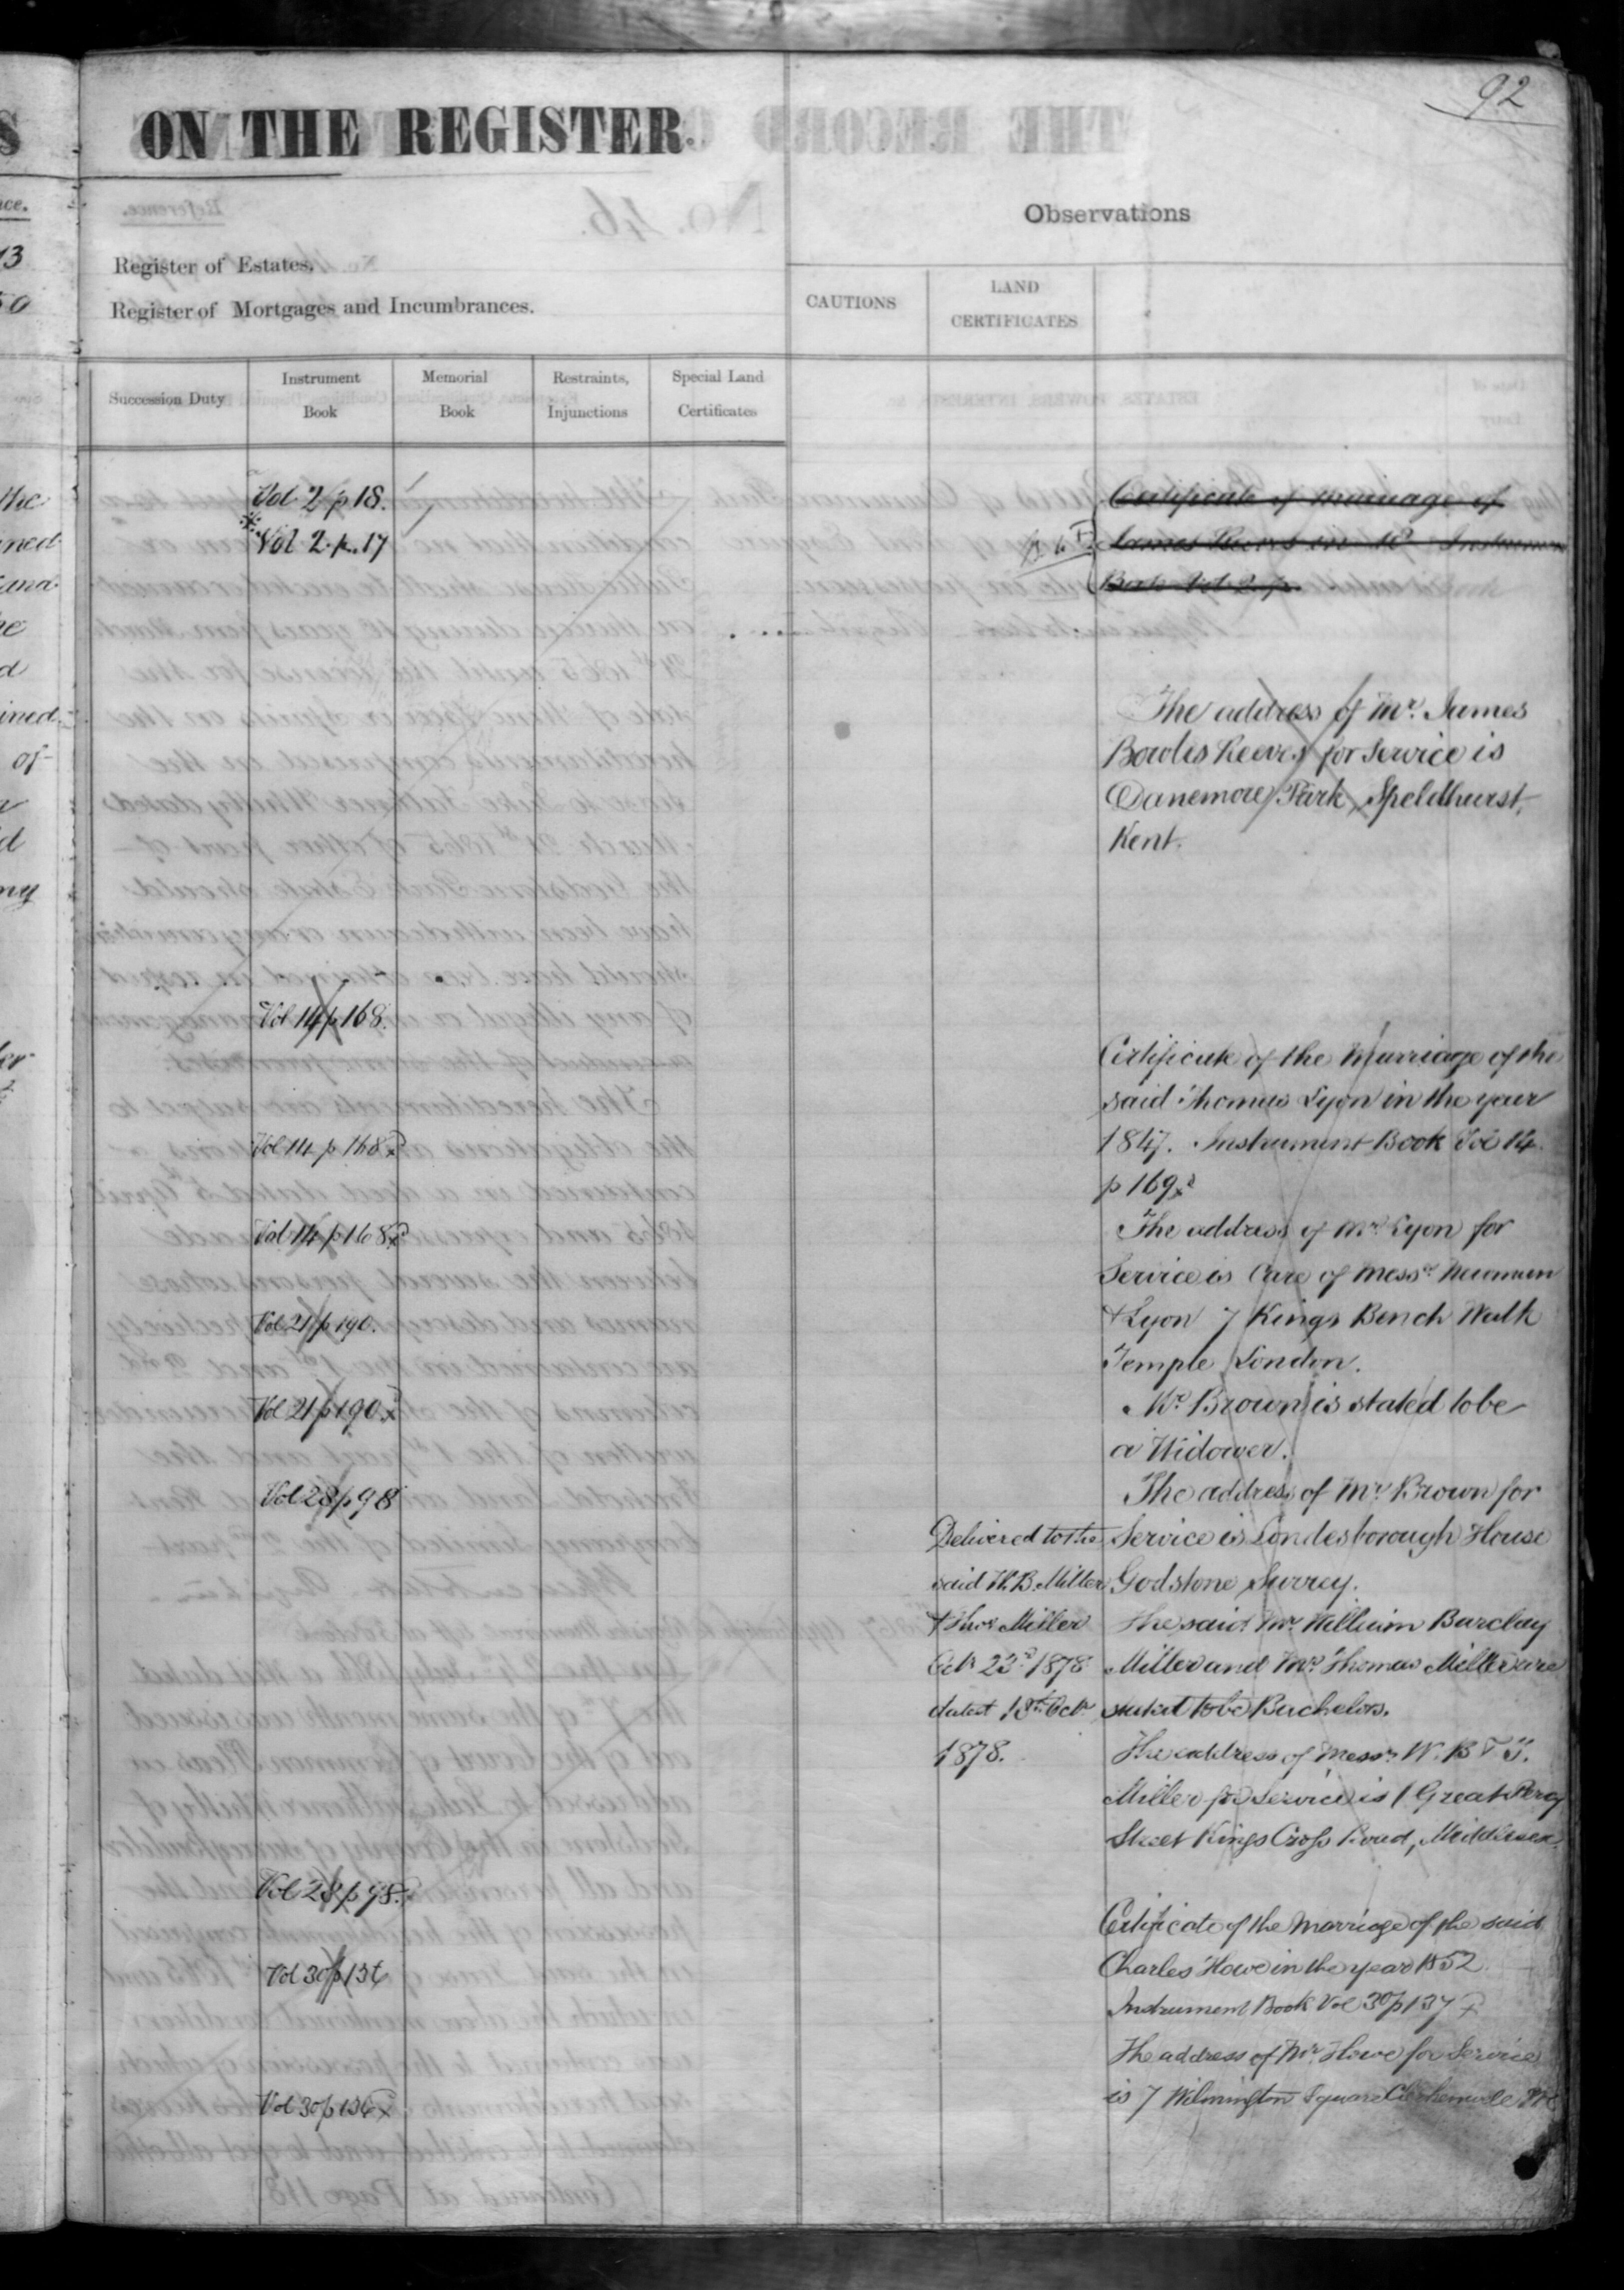 92
ON THE REGISTER.
Observations
Register of Estates.
Register of Mortgages and Incumbrances.
CAUTIONS
LAND
CERTIFICATES
Succession Duty
Instrument
Book
Memorial
Book
Restraints,
Injunctions
Special Land
Certificates
Vol 2 p 18.
Vol 2 p. 17
Certificate of marriage of
James Reeves in
Book Vol 2 p
The address of Mr. James
Bowles Reeves for Service is
Danemore Park, Speldhurst,
Kent.
Vol 14 p 168.
Certificate of the Marriage of the
said Thomas Lyon in the year
1847. Instrument Book Vol 14
p 169
Vol 14 p 168
The address of Mr Lyon for
Vol 14 p 168
Service is Care of Messrs Newman
& Lyon 7 Kings Bench Walk
Vol 21 p 190.
Temple London.
Mr Brown is stated to be
Vol 21 p 190
a Widower.
The address of Mr. Brown for
Vol 28 p 98
Service is Londesborough House
Godstone Surrey.
Delivered to the
said W. B. Miller
& Thos Miller
Oct 23rd 1878
dated 18th Oct
1878.
The said Mr William Barclay
Miller and Mr Thomas Miller are
stated to be Bachelors.
The address of Messrs W. B & T.
Miller for Service is 1 Great Percy
Street Kings Cross Road, Middlesex.
Vol 28 p 98.
Certificate of the Marriage of the said
Vol 30 p 136
Charles Howe in the year 1852
Instrument Book Vol 30 p 137
The address of Mr Howe for Service
Vol 30 p 136
is 7 Wilmington Square Clerkenwell